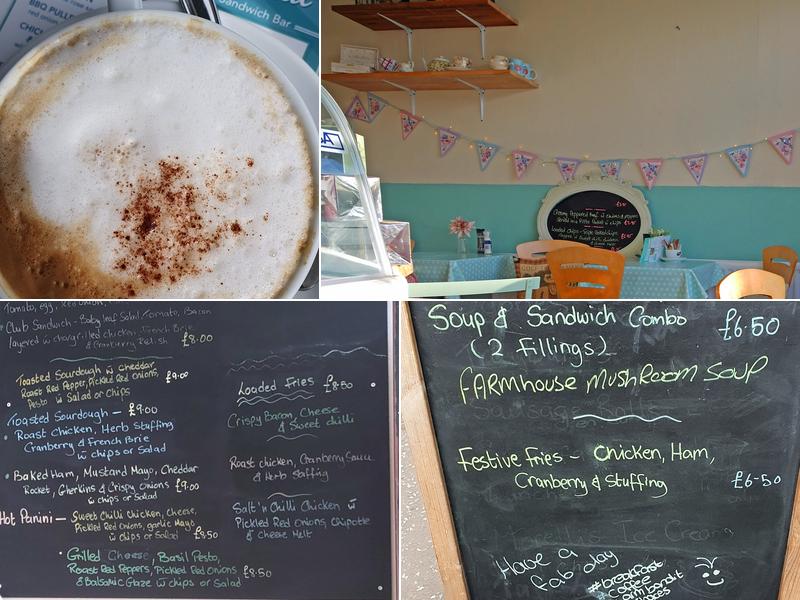 BBQ PULL
red onion
CHIC
Sandwich Bar
Tomato, egg, Red Onion,
Club Sandwich - Baby leaf Salad, Tomato, Bacon
layered w chargrilled chicken, French Brie
& Cranberry Relish £8.00
Toasted Sourdough w cheddar
Roast Red Pepper, Pickled Red Onions, £9.00
Pesto w Salad or Chips
Toasted Sourdough - £9.00
Roast Chicken, Herb Stuffing
Cranberry & French Brie
w chips or Salad
Baked Ham, Mustand Mayo, Cheddar
Rocket, Gherkins & Crispy Onions £9.00
w chips or Salad
Hot Panini - Sweet Chilli Chicken, Cheese,
Pickled Red Onions, garlic Mayo
w chips or Salad £8.50
Grilled Cheese, Basil Pesto,
Roast Red Peppers, Pickled Red Onions
& Balsamic Glaze w chips or Salad £8.50
Loaded Fries £8.50
Crispy Bacon, Cheese
& Sweet chilli
Roast chicken, Cranberry Sauce
& Herb Stuffing
Salt 'n Chilli Chicken w
Pickled Red Onions, Chipotle
& Cheese Melt
Soup & Sandwich Combo £6.50
(2 fillings)
FARMhouse MushRoom Soup
Festive Fries - Chicken, Ham,
Cranberry & Stuffing £6-50
Ice Cream
Have a
fab day
#breakfast
coffee